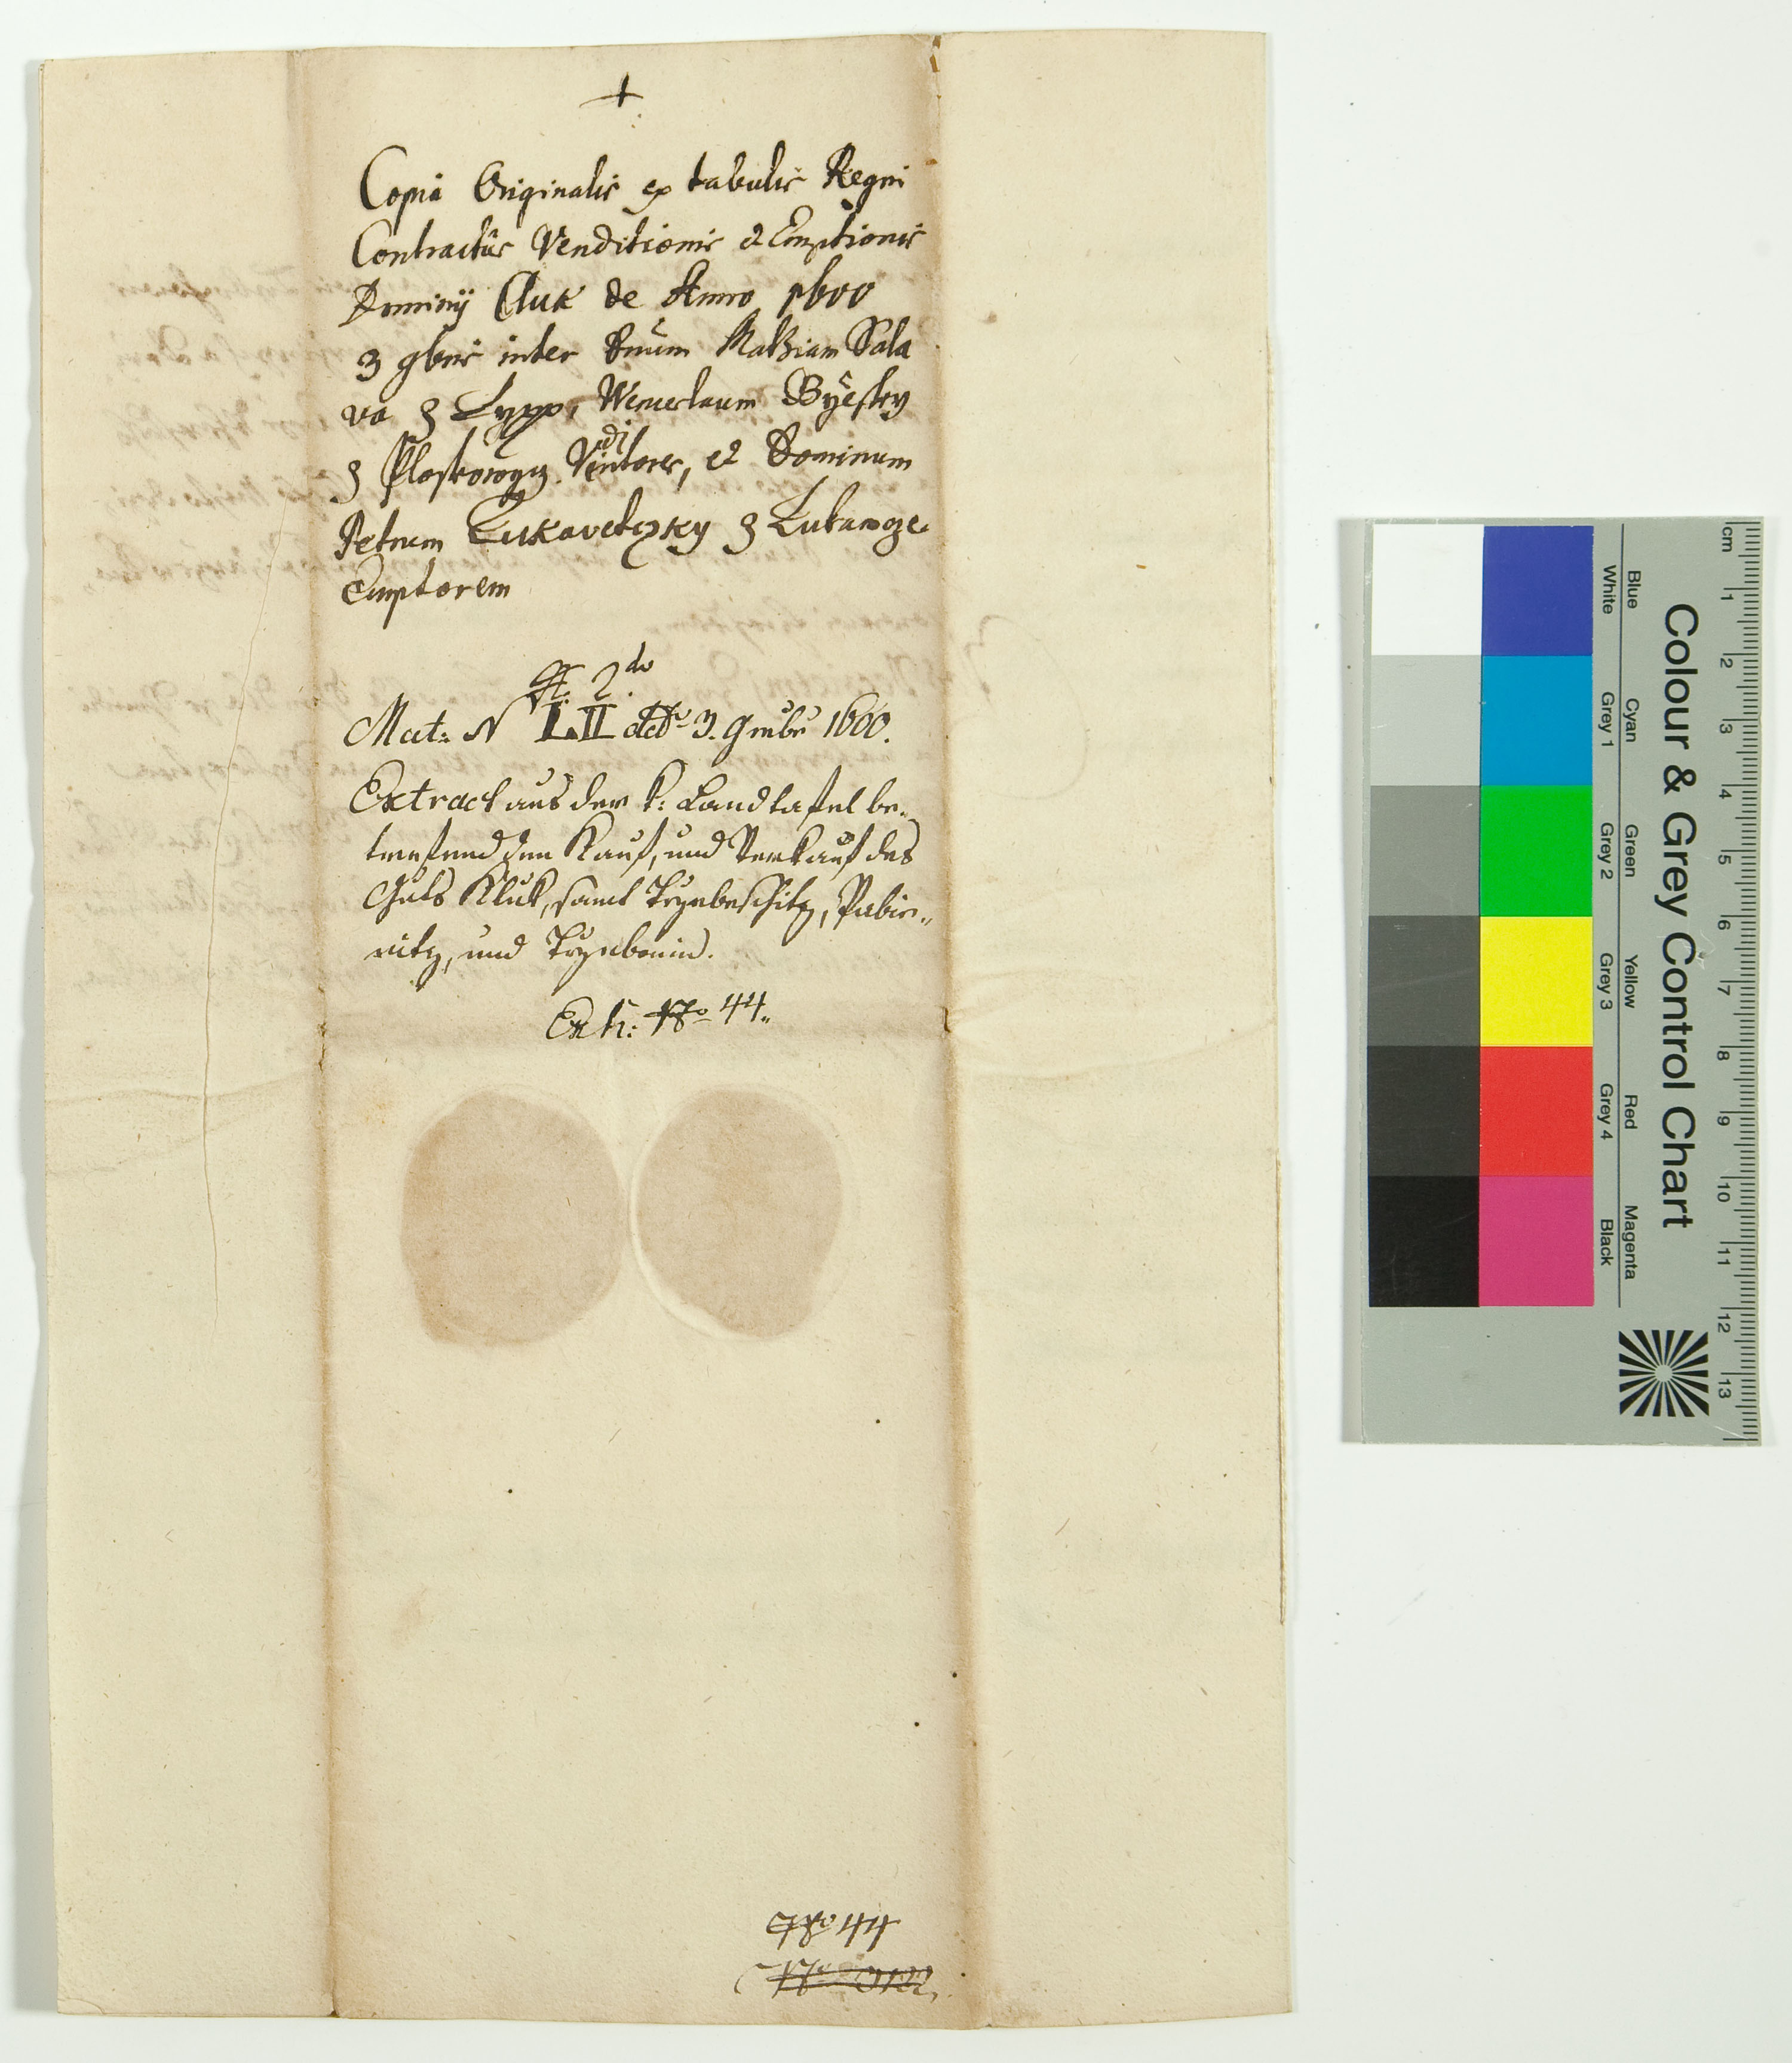 Copia Originalis ex tabulis Regni
Contractus Venditionis et Emptionis
Dominÿ Cluk de Anno 1600
3 9bris inter Dnum Mathiam Sala
va z Lyppo, Wenceslaum Byessky
z Ploskowycz Venditores, et Dominum
Petrum Lukavetzky z Lukawcze
Emptorem
2do
Mat: N LII ddto 3. 9mbr 1600.
Extract aus der k: Landtafel be„
trefend den Kauf, und Verkauf des
Guts Kluk, samt Trzebeschitz, Pabie„
nitz, und Trzebonin.
Exh: No 44„
No 44